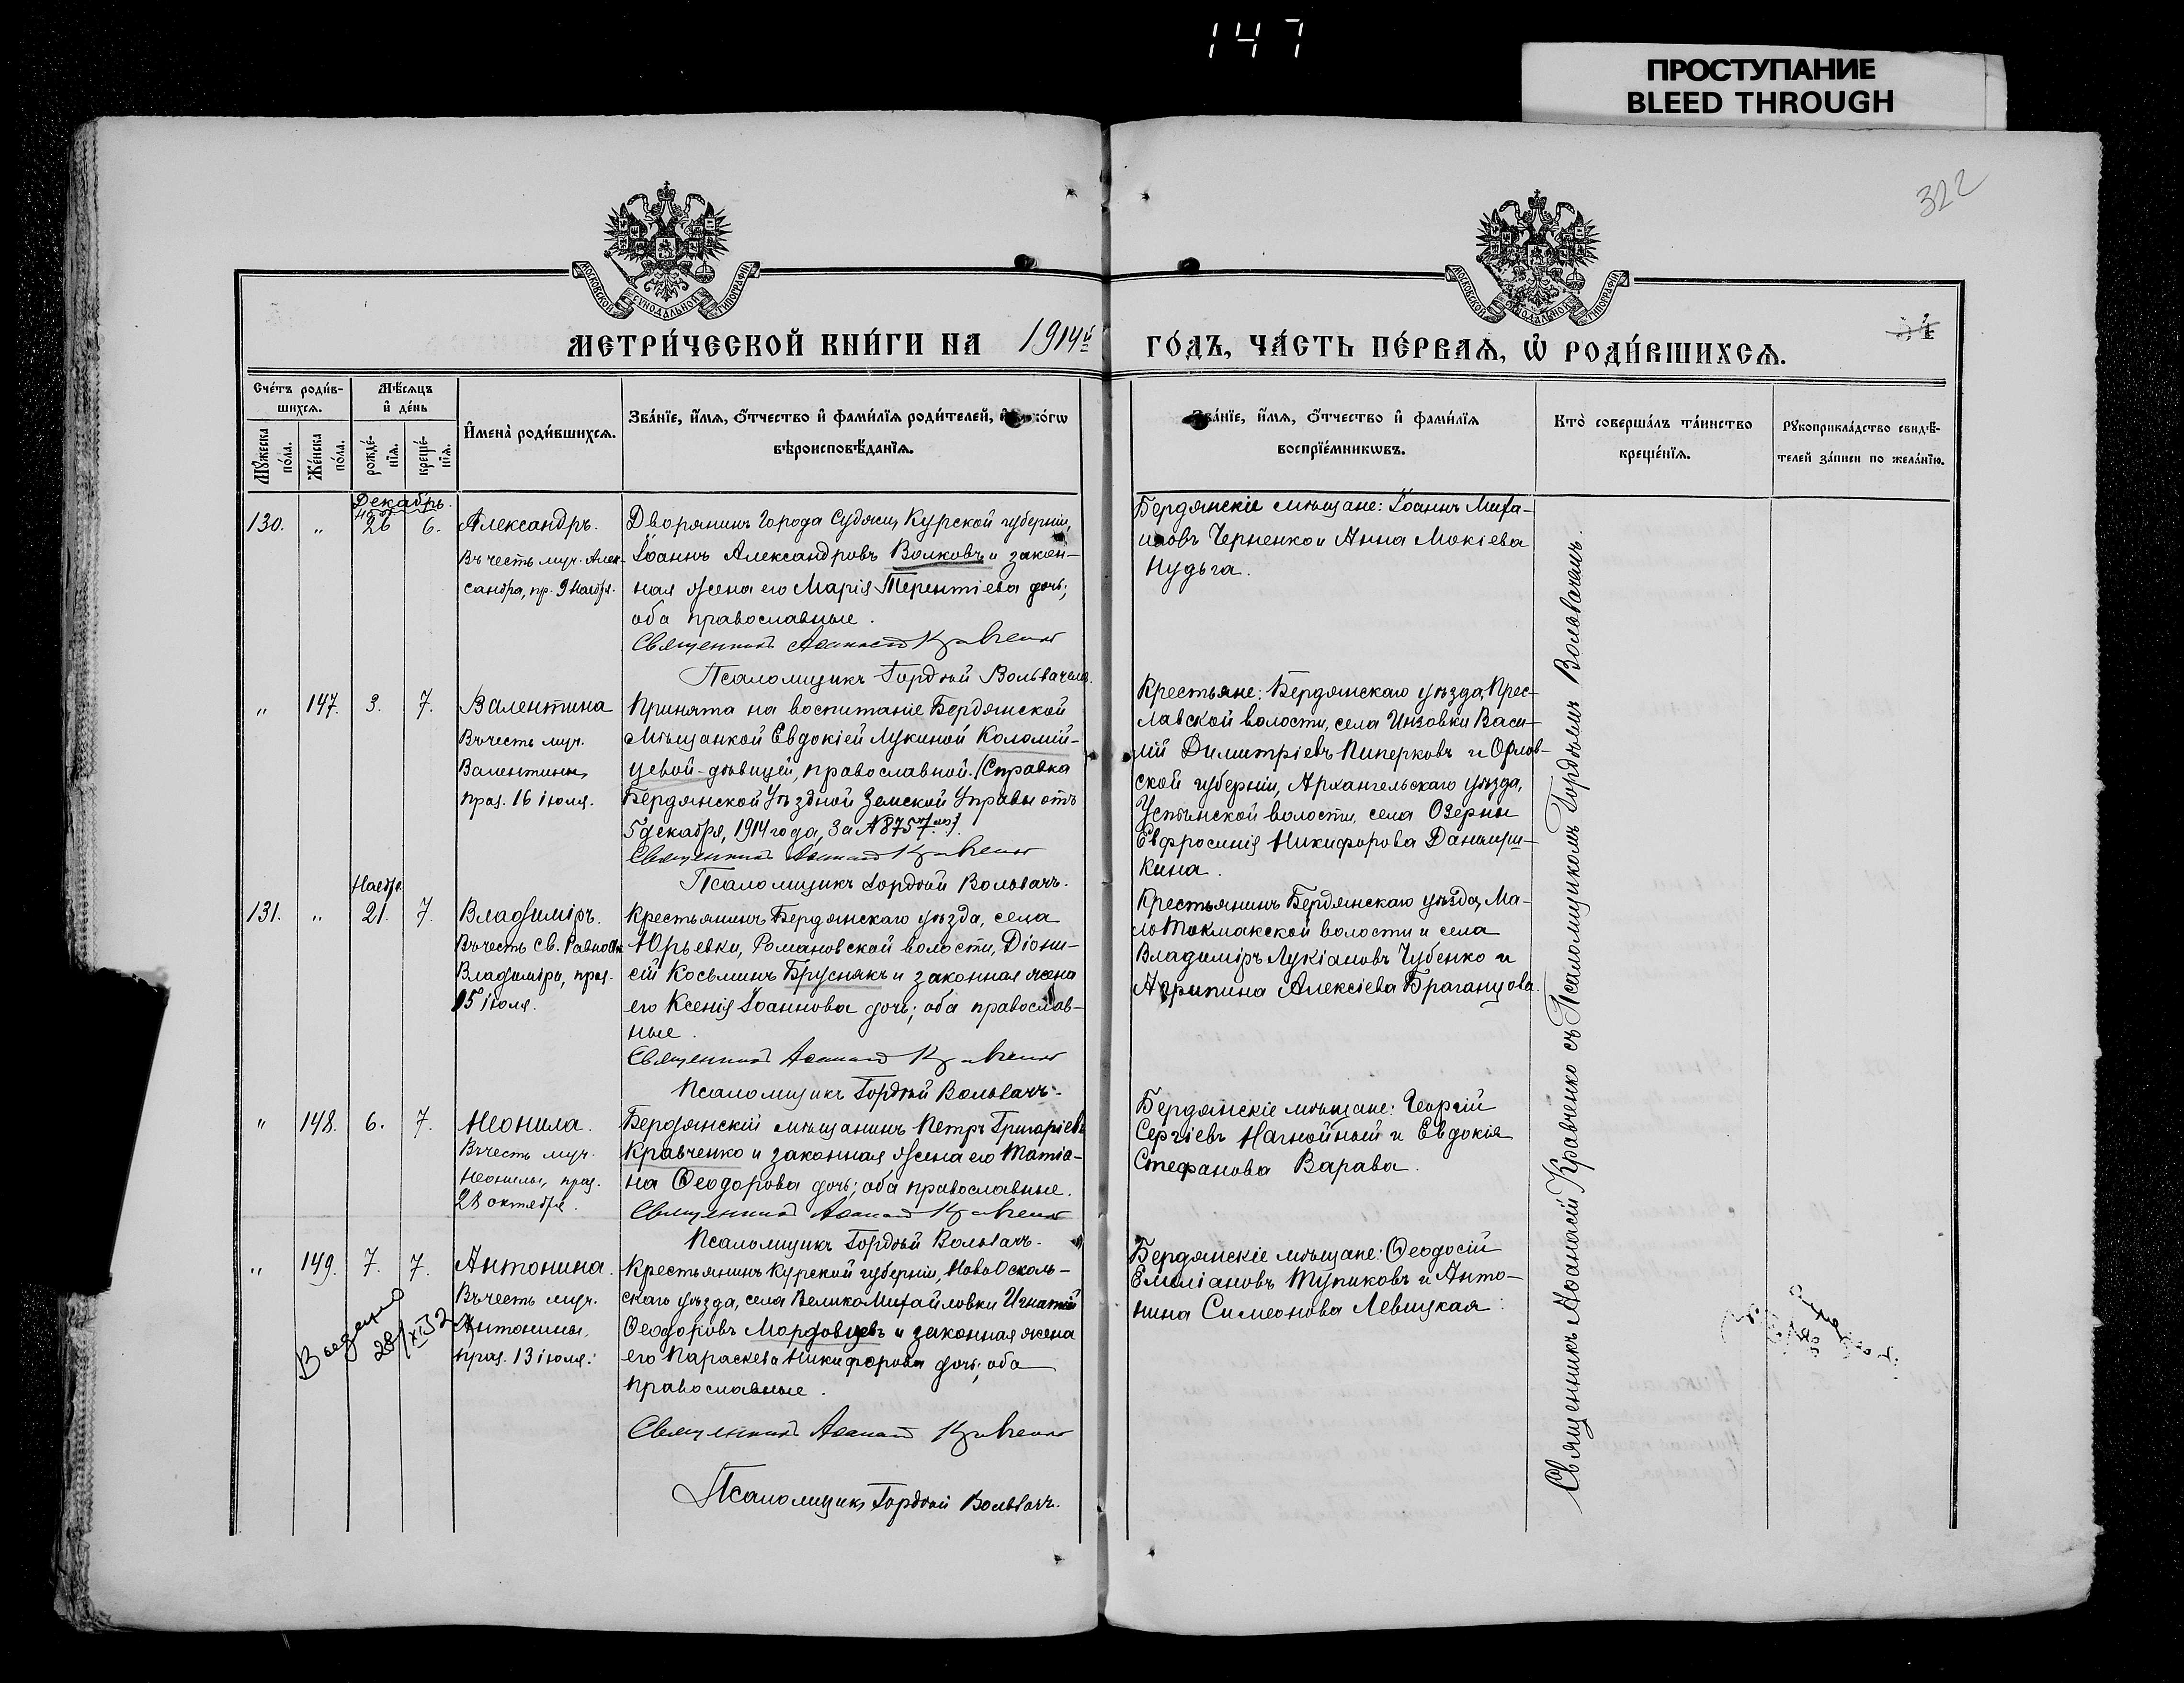 147
ПРОСТУПАНИЕ
BLEED THROUGH
322
МОСКОВСКОЙ СѴНОДАЛЬНОЙ ТИПОГРАФІИ
МОСКОВСКОЙ СѴНОДАЛЬНОЙ ТИПОГРАФІИ
МЕТРИ́ЧЕСКОЙ КНИ́ГИ НА 1914й ГО́ДЪ, ЧА́СТЬ ПЕ́РВАѦ, Ѡ҆ РОДИ́ВШИХСѦ.
Сче́тъ роди́в-
шихсѧ.
Мꙋ́жеска по́ла.
Же́нска по́ла.
Мѣ́сѧцъ
и҆ де́нь
рожде́-
нїѧ.
креще́-
нїѧ.
И҆мена̀ роди́вшихсѧ.
Зва́нїе, и҆́мѧ, ѻ҆́тчество и҆ фами́лїѧ роди́телей, и҆ како́гѡ
вѣроисповѣ́данїѧ.
Зва́нїе, и҆́мѧ, ѻ҆́тчество и҆ фами́лїѧ
воспрїе́мникѡвъ.
Кто̀ соверша́лъ та́инство
креще́нїѧ.
Рꙋкоприкла́дство свидѣ́-
телей за́писи по жела́нїю.
Декабрь.
130. „ 26 6. Александръ.
Въ честь муч. Алек-
сандра, пр. 9 Ноября.
Дворянинъ города Суджи, Курской губерніи,
Іоаннъ Александровъ Волковъ и закон-
ная жена его Марія Терентіева дочь;
оба православные.
Священникъ Аѳанасій Кравченко
Псаломщикъ Гордѣй Вольвачъ.
Бердянскіе мѣщане: Іоаннъ Миха-
иловъ Черненко и Анна Мокіева
Нудьга.
„ 147. 3. 7. Валентина
Въ честь муч.
Валентины,
праз. 16 іюля.
Принята на воспитаніе Бердянской
Мѣщанкой Евдокіей Лукиной Коломій-
цевой-дѣвицей, православной. (Справка
Бердянской Уѣздной Земской Управы отъ
5 декабря, 1914 года, за № 8757).
Священникъ Аѳанасій Кравченко
Псаломщикъ Гордѣй Вольвачъ.
Крестьяне: Бердянскаго уѣзда, Прес-
лавской волости, села Инзовки Васи-
лій Димитріевъ Пиперковъ и Орлов-
ской губерніи, Архангельскаго уѣзда,
Устьинской волости, села Озерны
Евфросинія Никифорова Даньши-
кина.
Ноябр.
131. „ 21. 7. Владиміръ.
Въ честь Св. Равноап.
Владиміра, праз.
15 іюля.
Крестьянинъ Бердянскаго уѣзда, села
Юрьевки, Романовской волости, Діони-
сій Косьминъ Бруснякъ и законная жена
его Ксенія Іоаннова дочь; оба православ-
ные.
Священникъ Аѳанасій Кравченко
Псаломщикъ Гордѣй Вольвачъ.
Крестьянинъ Бердянскаго уѣзда, Ма-
ло Токмакской волости и села
Владиміръ Лукіановъ Чубенко и
Агрипина Алексіева Браганцова.
„ 148. 6. 7. Неонила.
Въ честь муч.
Неонилы, праз.
28 октября.
Бердянскій мѣщанинъ Петръ Григоріевъ
Кравченко и законная жена его Татіа-
на Ѳеодорова дочь; оба православные.
Священникъ Аѳанасій Кравченко
Псаломщикъ Гордѣй Вольвачъ.
Бердянскіе мѣщане: Георгій
Сергіевъ Нагнойный и Евдокія
Стефанова Варава.
„ 149. 7. 7. Антонина.
Въ честь муч.
Антонины,
праз. 13 іюля.
Крестьянинъ Курской губерніи, НовоОсколь-
скаго уѣзда, села ВеликоМихайловки Игнатій
Ѳеодоровъ Мордовцевъ и законная жена
его Параскева Никифорова дочь; оба
православные.
Священникъ Аѳанасій Кравченко
Псаломщикъ Гордѣй Вольвачъ.
Бердянскіе мѣщане: Ѳеодосій
Емиліановъ Тупиковъ и Анто-
нина Симеонова Левицкая.
28/XI 32
Священникъ Аѳанасій Кравченко съ Псаломщикомъ Гордѣемъ Вольвачемъ.